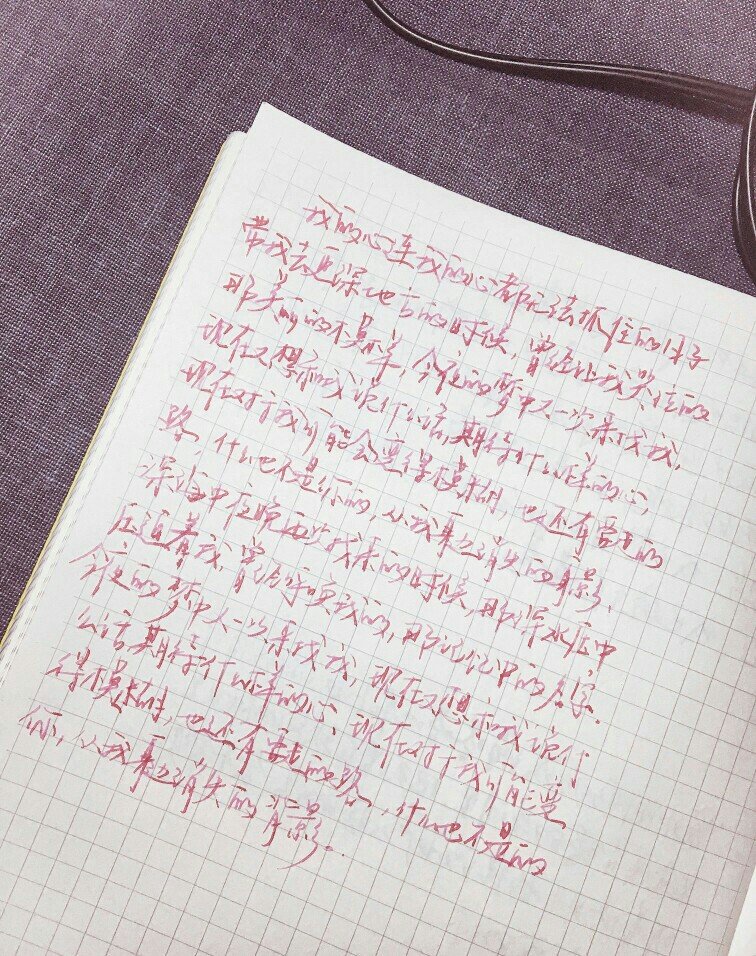 我的心连我的心都无法抓住的日子
带我去更深地方的时候,曾经让我哭泣的
那美丽的不是羊,今夜的梦中又一次来找我,
现在又想和我说什么话,期待什么样的心,
现在对于我可能会变得模糊,也还有要走的
路,什么也不是你的,从我身边消失的背影,
深海中夜晚再次找来的时候,那深水压中
压迫着我,曾经呼唤我的,那记忆中的名字.
今夜的梦中又一次来找我,现在又想和我说什
么话期待什么样的心、现在对于我可能变
得模糊,也还有要走的路,什么也不是的
你,从我身边消失的背影.